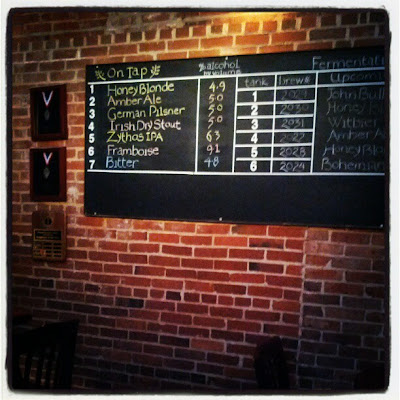 On Tap % alcohol by volume
1 Honey Blonde 4.9
2 Amber Ale 5.0
3 German Pilsner 5.0
4 Irish Dry Stout 5.0
5 Zythos IPA 6.3
6 Framboise 9.1
7 Bitter 4.8
Fermentati
tank brew# Upcom
1 2029 John Bull
2 2030 Honey B
3 2031 Witbier
4 2022 Amber A
5 2028 Honey Blo
6 2024 Bohemian